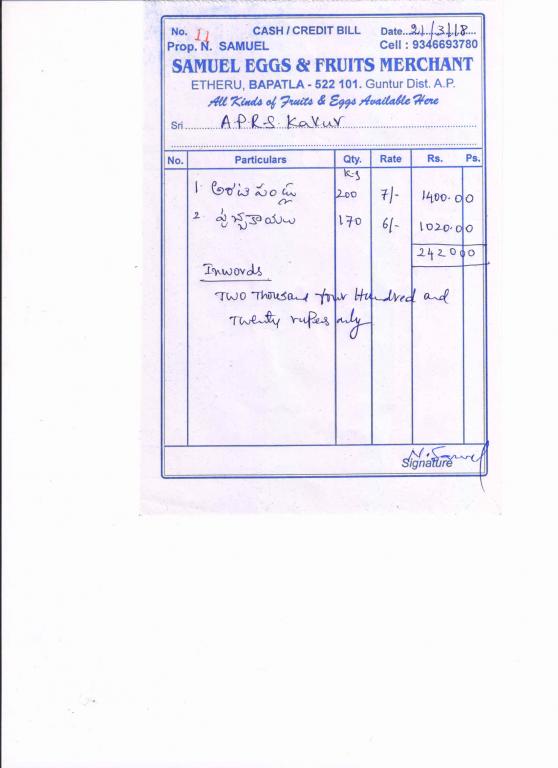 No. 11 CASH / CREDIT BILL Date...21/3/18....
Prop. N. SAMUEL Cell : 9346693780
SAMUEL EGGS & FRUITS MERCHANT
ETHERU, BAPATLA - 522 101. Guntur Dist. A.P.
All Kinds of Fruits & Eggs Available Here
Sri A.P.R.S. Kavur
No. Particulars Qty. Rate Rs. Ps.
Kg
1 అరటి పండ్లు 200 7/- 1400.00
2 పుచ్చకాయలు 170 6/- 1020.00
2420 00
Inwords
Two Thousand four Hundred and
Twenty rupes only
N. Samuel
Signature